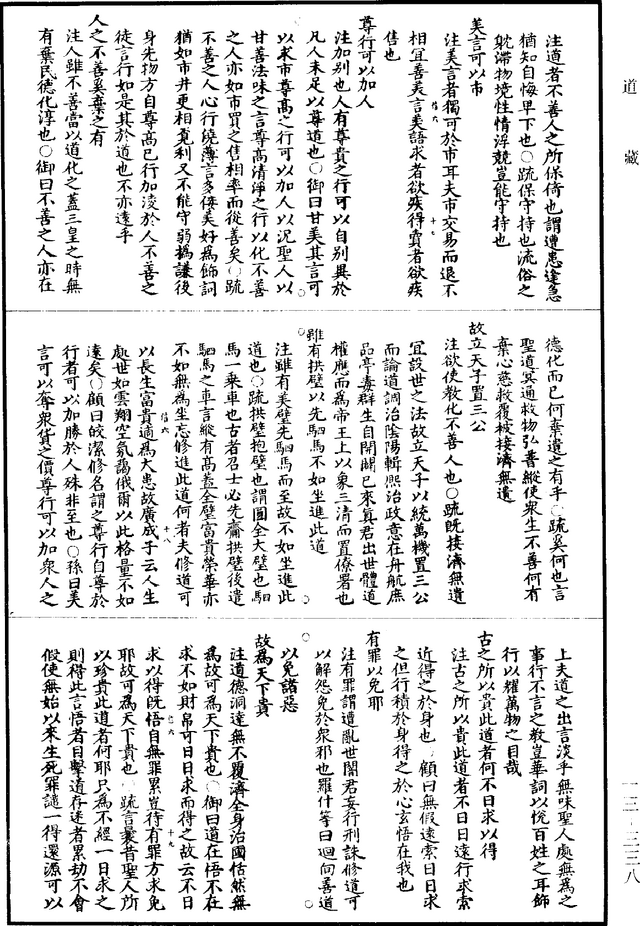 道藏
一三-三三八
注道者不善人之所保倚也謂遭患逢急
猶知自悔早下也○疏保守持也流俗之
躭滯物境性情浮競豈能守持也
美言可以市
注美言者獨可於市耳夫市交易而退不
相宜善美言美語求者欲疾得賣者欲疾
售也
尊行可以加人
注加別也人有尊貴之行可以自別異於
凡人未足以尊道也○御曰甘美其言可
以求市尊高之行可以加人以況聖人以
甘善法味之言尊高清淨之行以化不善
之人亦如市買之售相率而從善矣○疏
不善之人心行澆薄言多佞美好爲飾詞
猶如市井更相覓利又不能守弱爲謙後
身先物方自尊高已行加淩於人不善之
徒言行如是其於道也不亦遠乎
人之不善奚棄之有
注人雖不善當以道化之蓋三皇之時無
有棄民德化淳也○御曰不善之人亦在
德化而已何棄遺之有乎○疏奚何也言
聖道冥通救物弘普縱使衆生不善何有
棄心慈救覆被接濟無遺
故立天子置三公
注欲使教化不善人也○疏既接濟無遺
宜設世之法故立天子以統萬機置三公
而論道調治陰陽輯熙治政意在舟航庶
品亭毒群生自開闢已來真君出世體道
權應而爲帝王上以象三清而置僚署也
雖有拱璧以先駟馬不如坐進此道
注雖有美璧先駟馬而至故不如坐進此
道也○疏拱璧抱璧也謂圓全大璧也駟
馬一乘車也古者召士必先齎拱璧後遣
駟馬之車言縱有高蓋全璧富貴榮華亦
不如無爲坐忘修進此道何者夫修道可
以長生富貴適爲大患故廣成子云人生
處世如雲翔空氛靄俄爾以此格量不如
遠矣○顧曰皎潔修名謂之尊行自尊於
行者可以加勝於人殊非至也○孫曰美
言可以奪衆貨之價尊行可以加衆人之
上夫道之出言淡乎無味聖人處無爲之
事行不言之教豈華詞以悅百姓之耳飾
行以耀萬物之目哉
古之所以貴此道者何不日求以得
注古之所以貴此道者不日日遠行求索
近得之於身也○顧曰無假遠索日日求
之但行積於身得之於心玄悟在我也
有罪以免耶
注有罪謂遭亂世闇君妄行刑誅修道可
以解怨免於衆邪也羅什等曰迴向善道
以免諸惡
故爲天下貴
注道德洞達無不覆濟全身治國恬然無
爲故可爲天下貴也○御曰道在悟不在
求不如財帛可日日求而得之故云不日
求以得既悟自無罪累豈待有罪方求免
耶故可爲天下貴也○疏言曩昔聖人所
以珍貴此道者何耶只爲不經一日求之
則得此言悟者目擊道存迷者累劫不會
假使無始以來生死罪譴一得還源可以